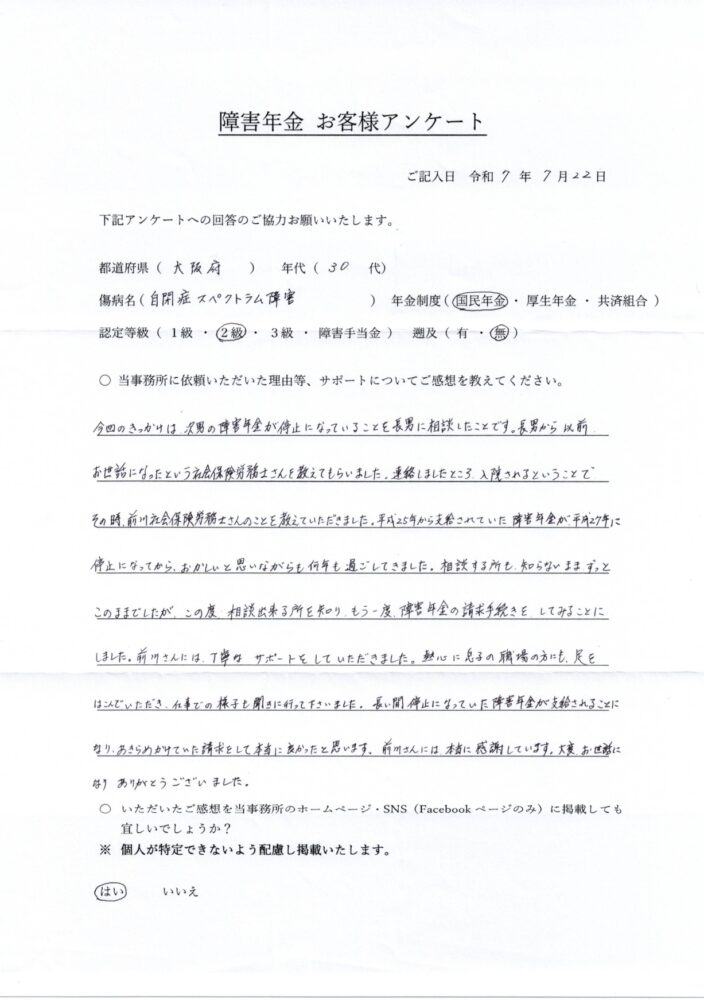 障害年金 お客様アンケート
ご記入日 令和 7 年 7 月 22 日
下記アンケートへの回答のご協力お願いいたします。
都道府県（ 大阪府 ） 年代（ 30 代）
傷病名（ 自閉症スペクトラム障害 ） 年金制度（ 国民年金 ・ 厚生年金 ・ 共済組合 ）
認定等級（ 1級 ・ 2級 ・ 3級 ・ 障害手当金 ） 遡及（ 有 ・ 無 ）
○ 当事務所に依頼いただいた理由等、サポートについてご感想を教えてください。
今回のきっかけは 次男の障害年金が停止になっていることを長男に相談したことです。長男から以前
お世話になったという社会保険労務士さんを教えてもらいました。連絡しましたところ、入院されるということで
その時、前川社会保険労務士さんのことを教えていただきました。平成25年から支給されていた 障害年金が、平成27年に
停止になってから、おかしいと思いながらも何年も過ごしてきました。相談する所も、知らないままずっと
このままでしたが、この度、相談出来る所を知り、もう一度、障害年金の請求手続きを、してみることに
しました。前川さんには、丁寧な サポートをしていただきました。熱心に息子の職場の方にも、足を
はこんでいただき、仕事での様子も聞きに行って下さいました。長い間停止になっていた障害年金が支給されることに
なり、あきらめかけていた請求をして本当に良かったと思います。前川さんには、本当に感謝しています。大変、お世話に
なり ありがとうございました。
○ いただいたご感想を当事務所のホームページ・SNS（Facebook ページのみ）に掲載しても
宜しいでしょうか？
※ 個人が特定できないよう配慮し掲載いたします。
はい いいえ